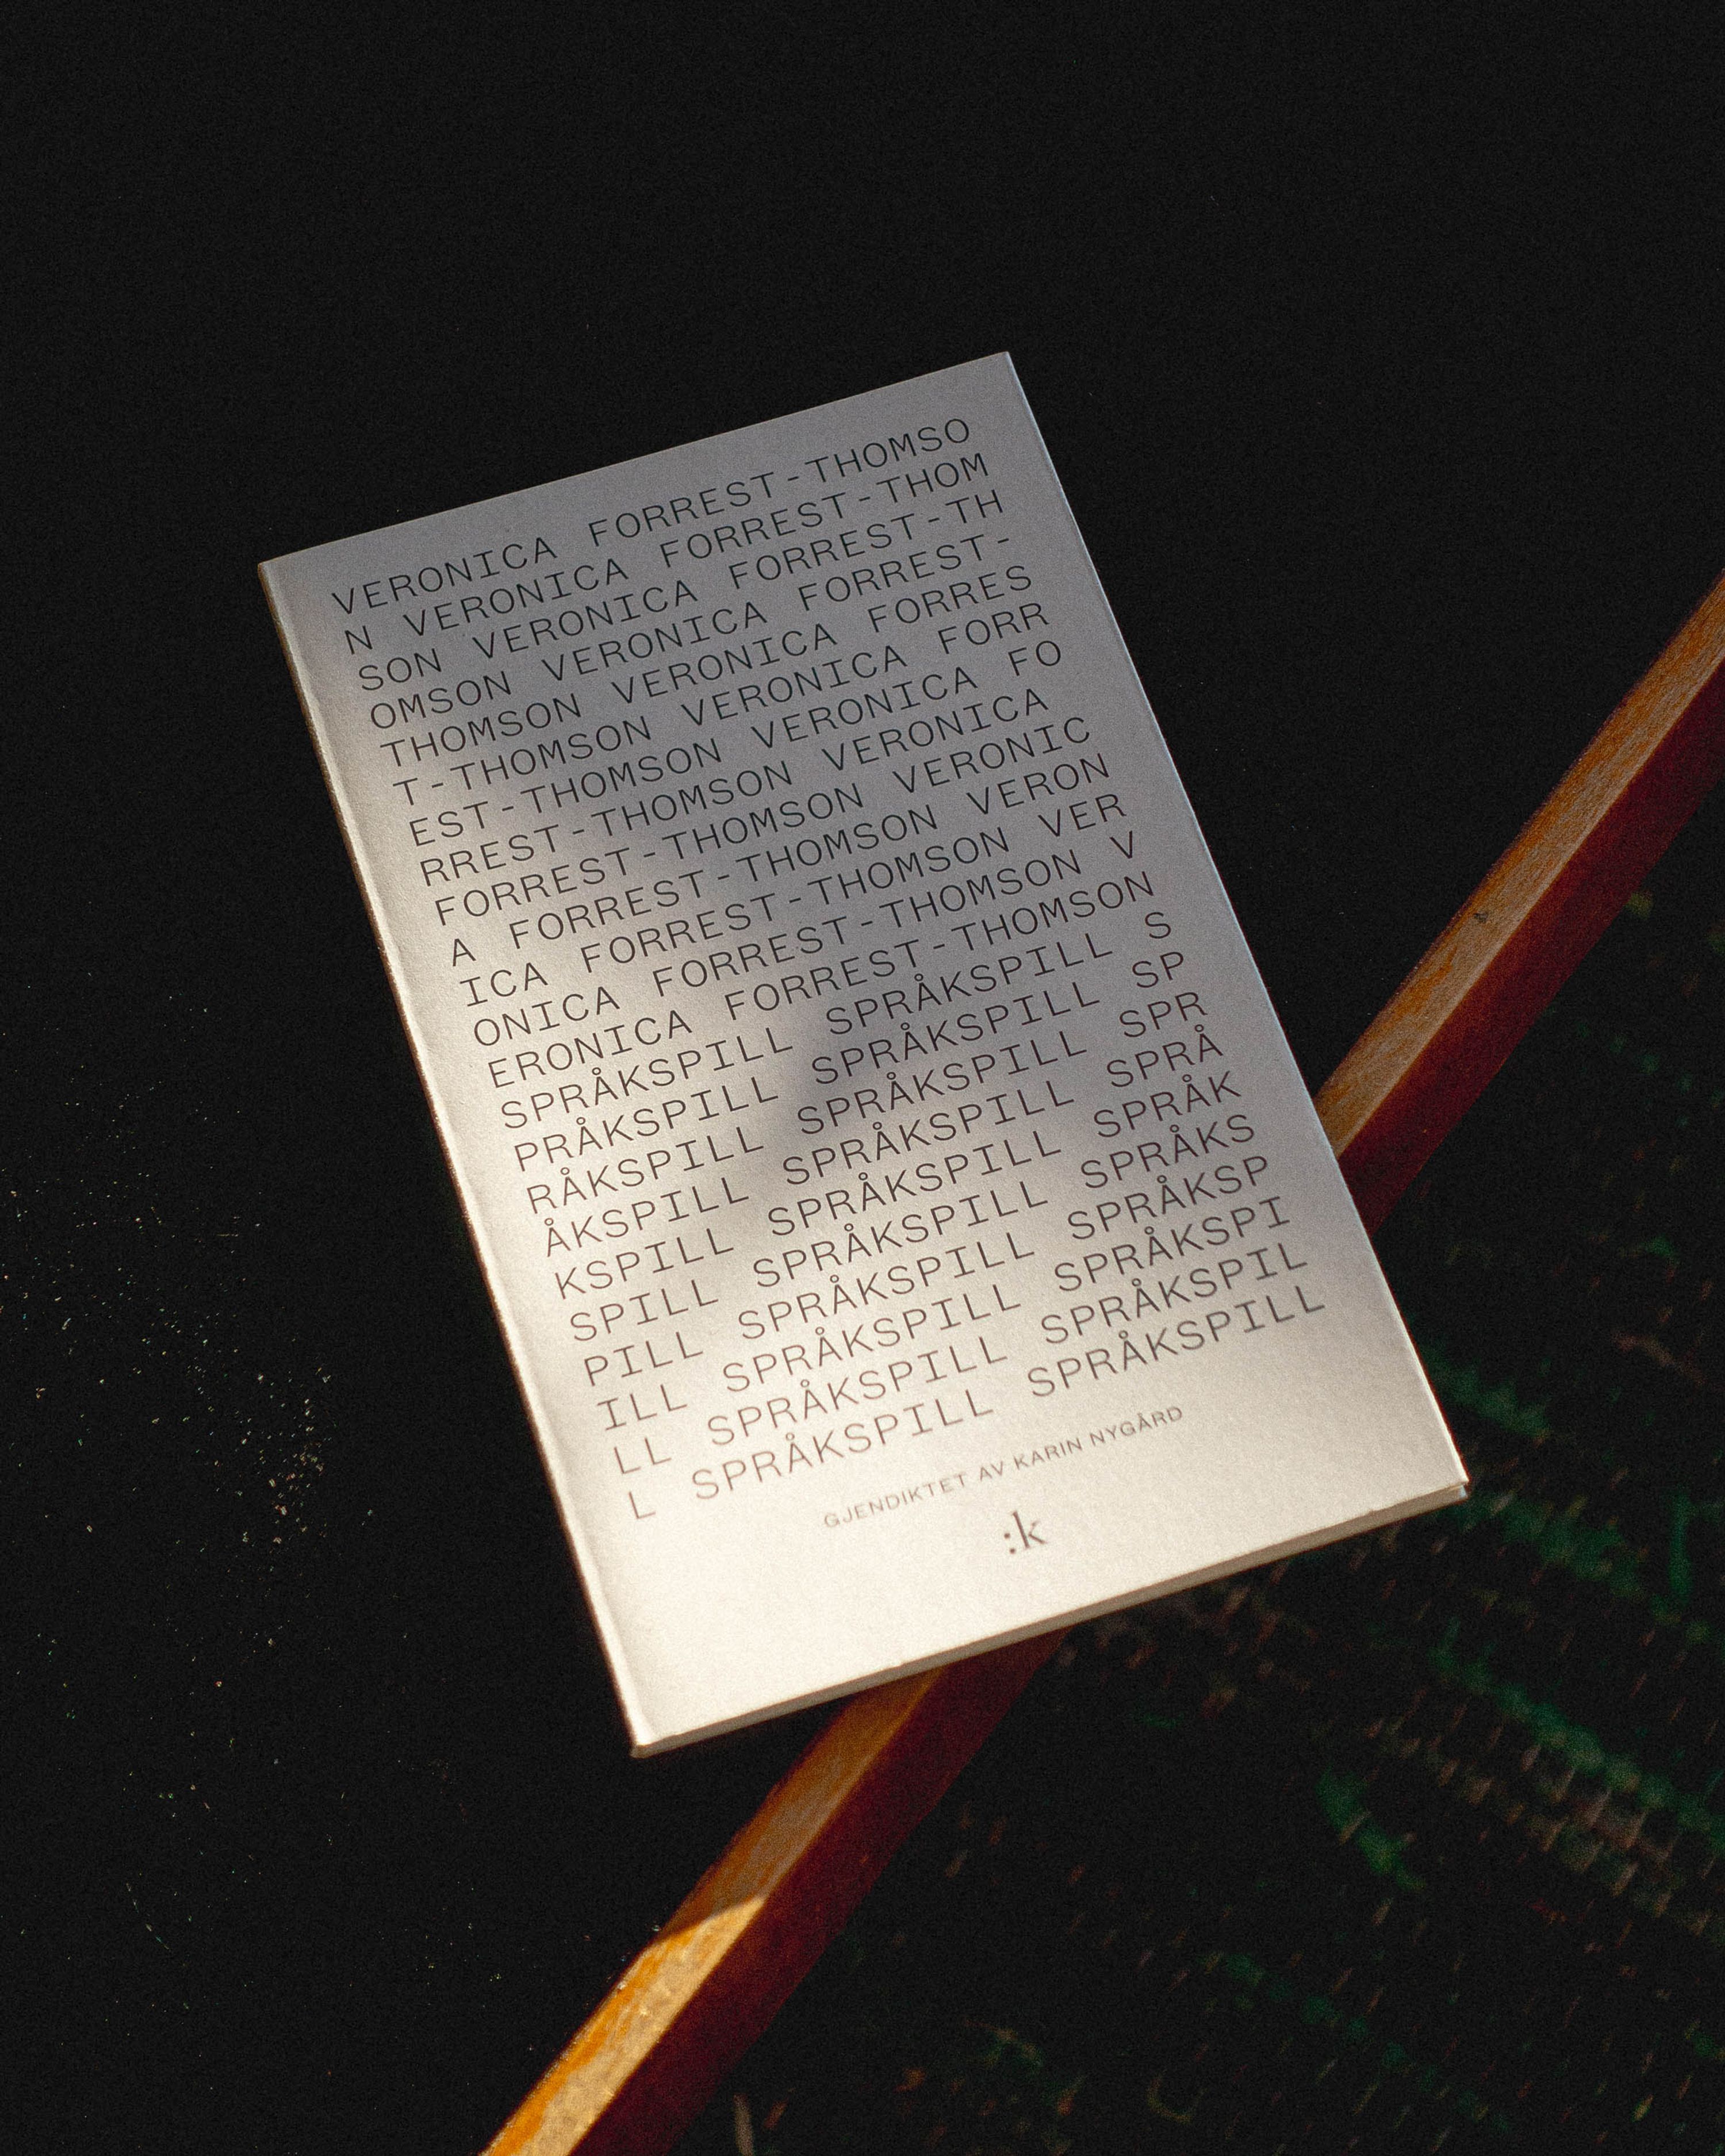 VERONICA FORREST-THOMSO
N VERONICA FORREST-THOM
SON VERONICA FORREST-TH
OMSON VERONICA FORREST-
THOMSON VERONICA FORRES
T-THOMSON VERONICA FORR
EST-THOMSON VERONICA FO
RREST-THOMSON VERONICA
FORREST-THOMSON VERONIC
A FORREST-THOMSON VERON
ICA FORREST-THOMSON VER
ONICA FORREST-THOMSON V
ERONICA FORREST-THOMSON
SPRÅKSPILL SPRÅKSPILL S
PRÅKSPILL SPRÅKSPILL SP
RÅKSPILL SPRÅKSPILL SPR
ÅKSPILL SPRÅKSPILL SPRÅ
KSPILL SPRÅKSPILL SPRÅK
SPILL SPRÅKSPILL SPRÅKS
PILL SPRÅKSPILL SPRÅKSP
ILL SPRÅKSPILL SPRÅKSPI
LL SPRÅKSPILL SPRÅKSPIL
L SPRÅKSPILL SPRÅKSPILL
GJENDIKTET AV KARIN NYGÅRD
:k